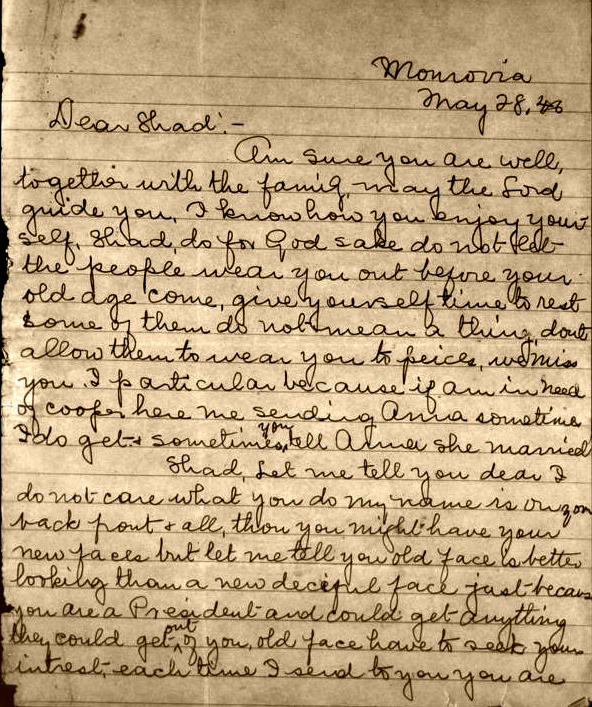 Monrovia
May 28, 48
Dear Shad:-
Am sure you are well,
together with the family, may the Lord
guide you, I know how you enjoy your
self. Shad, do for God sake do not let
the people wear you out before your
old age come, give yourself time to rest
some of them do not mean a thing, dont
allow them to wear you to peices, we miss
you. I particular because if am in need
of cooper here me sending Anna sometime
I do get & sometimes, you tell Anna she married
Shad, Let me tell you dear I
do not care what you do my name is on you
back front & all, thou you might have your
new faces but let me tell you old face is better
looking than a new deciful face just becaus
you are a President and could get anything
they could get out of you, old face have to seek your
intrest, each time I send to you you are